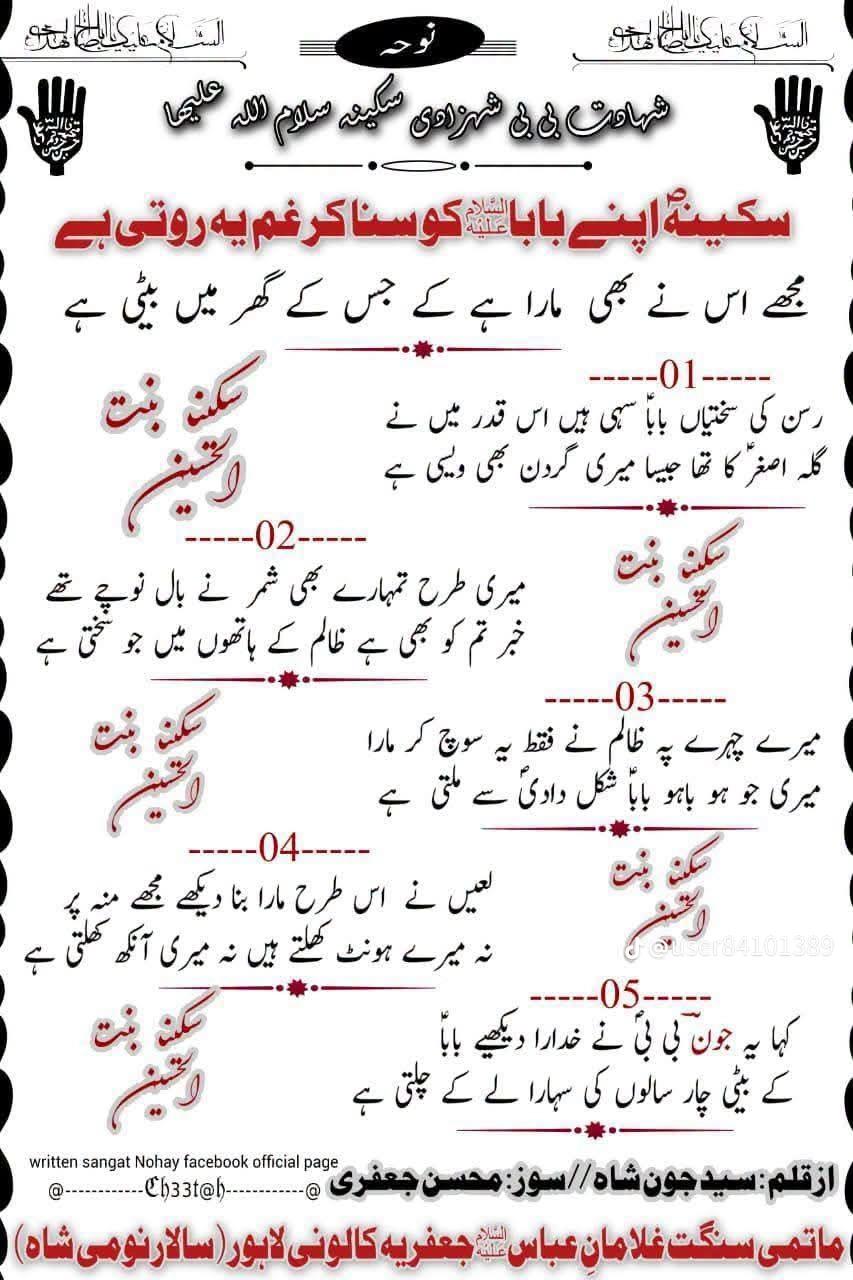 نوحہ
شہادت بی بی شہزادی سکینہ سلام اللہ علیھا
سکینہؑ اپنے بابا علیہ السلام کو سنا کر غم یہ روتی ہے
مجھے اس نے بھی مارا ہے کے جس کے گھر میں بیٹی ہے
-----01-----
رسن کی سختیاں باباؑ سہی ہیں اس قدر میں نے
گلہ اصغرؑ کا تھا جیسا میری گردن بھی ویسی ہے
سکینہ بنت
الحسین
-----02-----
میری طرح تمہارے بھی شمر نے بال نوچے تھے
خبر تم کو بھی ہے ظالم کے ہاتھوں میں جو سختی ہے
سکینہ بنت
الحسین
-----03-----
میرے چہرے پہ ظالم نے فقط یہ سوچ کر مارا
میری جو ہو باہو باباؑ شکل دادیؑ سے ملتی ہے
سکینہ بنت
الحسین
-----04-----
لعیں نے اس طرح مارا بنا دیکھے مجھے منہ پر
نہ میرے ہونٹ کھلتے ہیں نہ میری آنکھ کھلتی ہے
سکینہ بنت
الحسین
@user84101389
-----05-----
کہا یہ جون بی بیؑ نے خدارا دیکھیے باباؑ
کے بیٹی چار سالوں کی سہارا لے کے چلتی ہے
سکینہ بنت
الحسین
written sangat Nohay facebook official page
@-----------Ch33t@h-----------@
ازقلم: سید جون شاہ // سوز: محسن جعفری
ماتمی سنگت غلامانِ عباس علیہ السلام جعفریہ کالونی لاہور (سالار نومی شاہ)